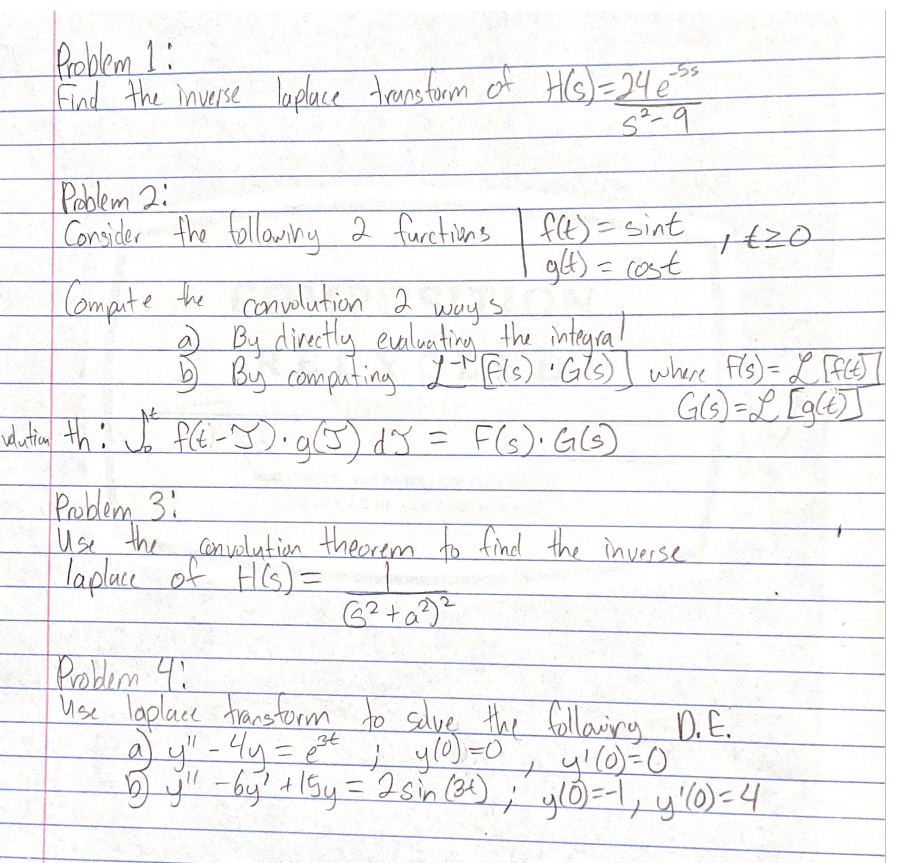 Problem 1:
Find the inverse laplace transform of H(s) = 24e^-5s / s²-9
Problem 2:
Consider the following 2 functions | f(t) = sint , t≥0
g(t) = cost
Compute the convolution 2 ways
a) By directly evaluating the integral
b) By computing ℒ⁻¹[F(s)·G(s)] where F(s) = ℒ[f(t)]
G(s) = ℒ[g(t)]
th: ∫₀ᵗ f(t-τ)·g(τ) dτ = F(s)·G(s)
Problem 3:
Use the convolution theorem to find the inverse
laplace of H(s) = 1 / (s²+a²)²
Problem 4:
Use laplace transform to solve the following D.E.
a) y'' - 4y = e^3t ; y(0)=0 , y'(0)=0
b) y'' -6y' +15y = 2sin(3t) ; y(0)=-1, y'(0)=4